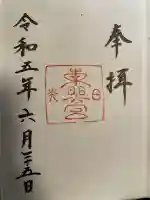 奉拝
日光
東照宮
令和五年六月二十五日